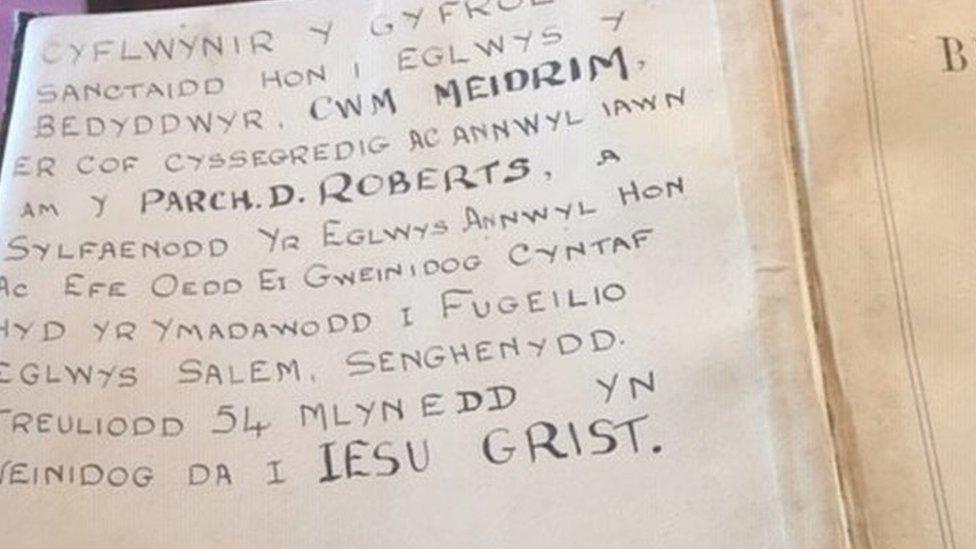 CYFLWYNIR Y GYFROL
SANCTAIDD HON I EGLWYS Y
BEDYDDWYR, CWM MEIDRIM,
ER COF CYSSEGREDIG AC ANNWYL IAWN
AM Y PARCH. D. ROBERTS, A
SYLFAENODD YR EGLWYS ANNWYL HON
AC EFE OEDD EI GWEINIDOG CYNTAF
HYD YR YMADAWODD I FUGEILIO
EGLWYS SALEM, SENGHENYDD.
TREULIODD 54 MLYNEDD YN
WEINIDOG DA I IESU GRIST.
B